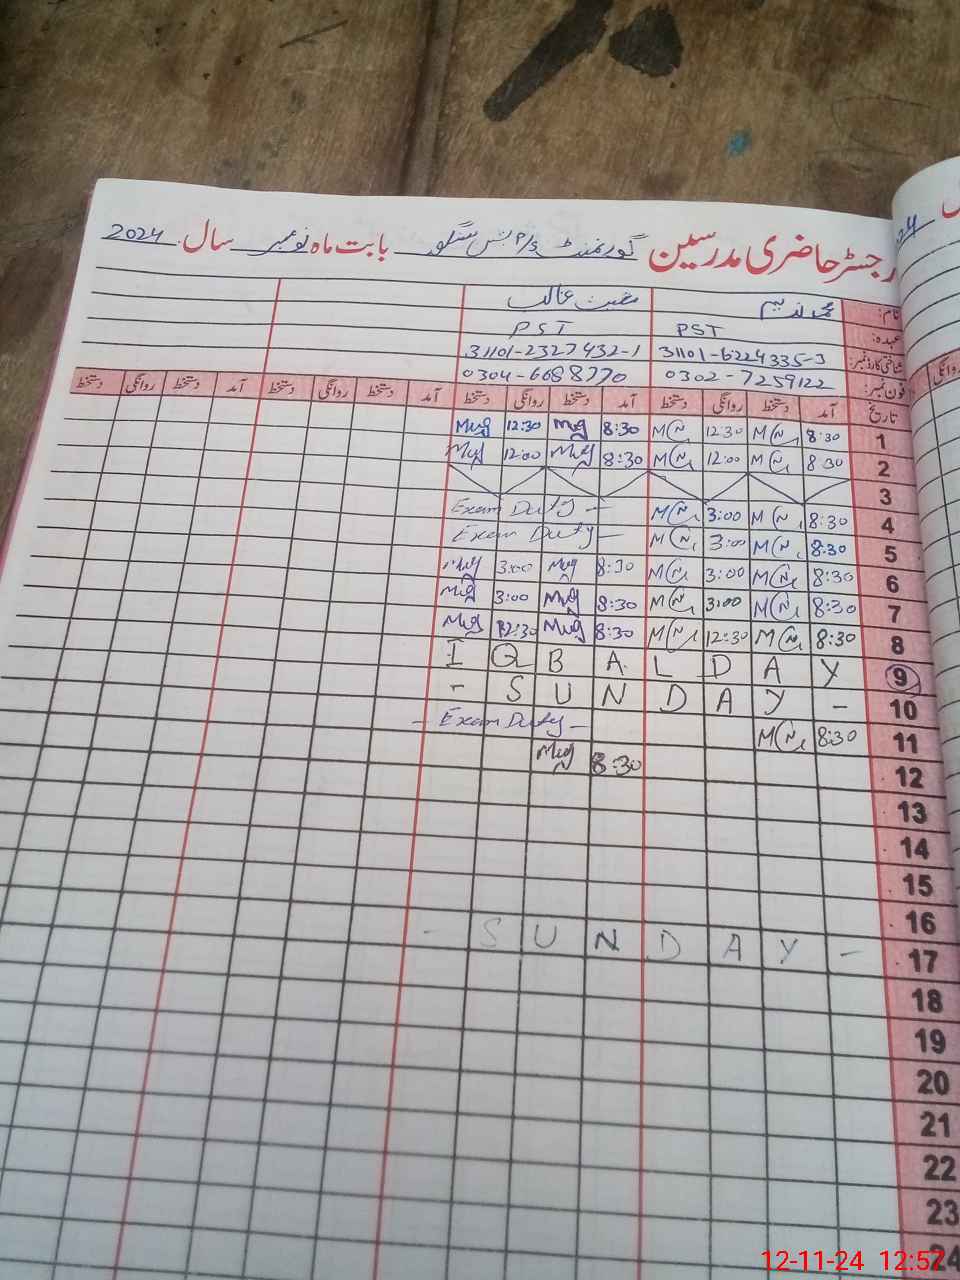 رجسٹر حاضری مدرسین گورنمنٹ P/S بابت ماہ نومبر سال 2024
نام: محمد ندیم
عہدہ: PST PST
شناختی کارڈ نمبر: 31101-6224335-3 31101-2327432-1
فون نمبر: 0302-7259122 0304-6688770
تاریخ آمد دستخط روانگی دستخط آمد دستخط روانگی دستخط آمد دستخط روانگی دستخط آمد دستخط روانگی دستخط
1 8:30 12:30 8:30 12:30
2 8:30 12:00 8:30 12:00
3
4 8:30 3:00 Exam Duty -
5 8:30 3:00 Exam Duty -
6 8:30 3:00 8:30 3:00
7 8:30 3:00 8:30 3:00
8 8:30 12:30 8:30 12:30
I Q B A L D A Y 9
- S U N D A Y - 10
11 8:30 - Exam Duty -
12 8:30
13
14
15
16
- S U N D A Y - 17
18
19
20
21
22
23
24
12-11-24 12:57